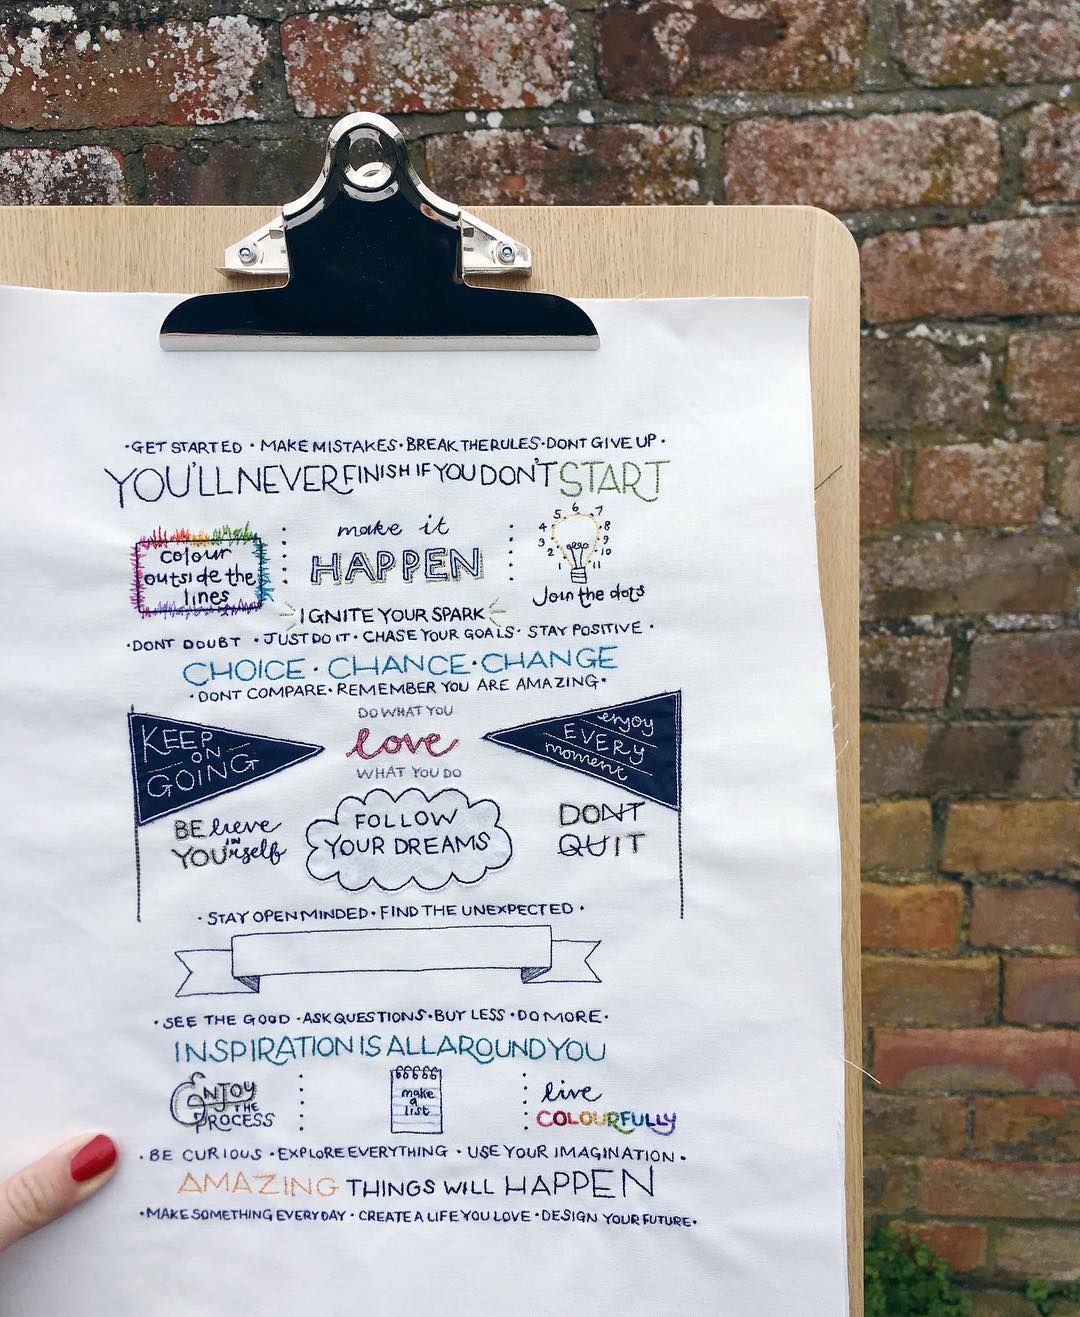 ·GET STARTED · MAKE MISTAKES· BREAK THE RULES· DONT GIVE UP ·
YOU'LL NEVER FINISH IF YOU DON'T START
colour
outside the
lines
make it
HAPPEN
1 2 3 4 5 6 7 8 9 10 11
Join the dots
IGNITE YOUR SPARK
·DONT DOUBT · JUST DO IT · CHASE YOUR GOALS· STAY POSITIVE ·
CHOICE · CHANCE · CHANGE
·DONT COMPARE· REMEMBER YOU ARE AMAZING·
KEEP
ON
GOING
DO WHAT YOU
love
WHAT YOU DO
enjoy
EVERY
moment
BElieve
IN
YOUrself
FOLLOW
YOUR DREAMS
DONT
QUIT
· STAY OPEN MINDED· FIND THE UNEXPECTED ·
· SEE THE GOOD · ASK QUESTIONS· BUY LESS · DO MORE·
INSPIRATION IS ALL AROUND YOU
ENJOY
THE
PROCESS
make
a
list
live
COLOURFULLY
· BE CURIOUS · EXPLORE EVERYTHING · USE YOUR IMAGINATION ·
AMAZING THINGS WILL HAPPEN
·MAKE SOMETHING EVERYDAY · CREATE A LIFE YOU LOVE · DESIGN YOUR FUTURE·